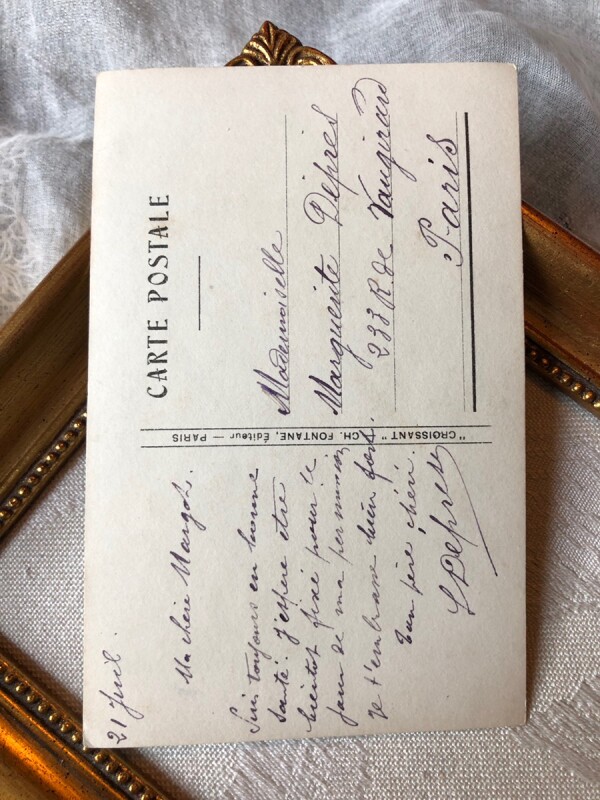 CARTE POSTALE
21 Juil.
Ma chère Margot.
Suis toujours en bonne
santé. J'espère être
bientot fixé pour le
jour de ma permission
Je t'embrasse bien fort.
Ton père chéri.
Depres
"CROISSANT" CH. FONTANE, Éditeur — PARIS
Mademoiselle
Marguerite Dépres
233 R. de Vaugirard
Paris